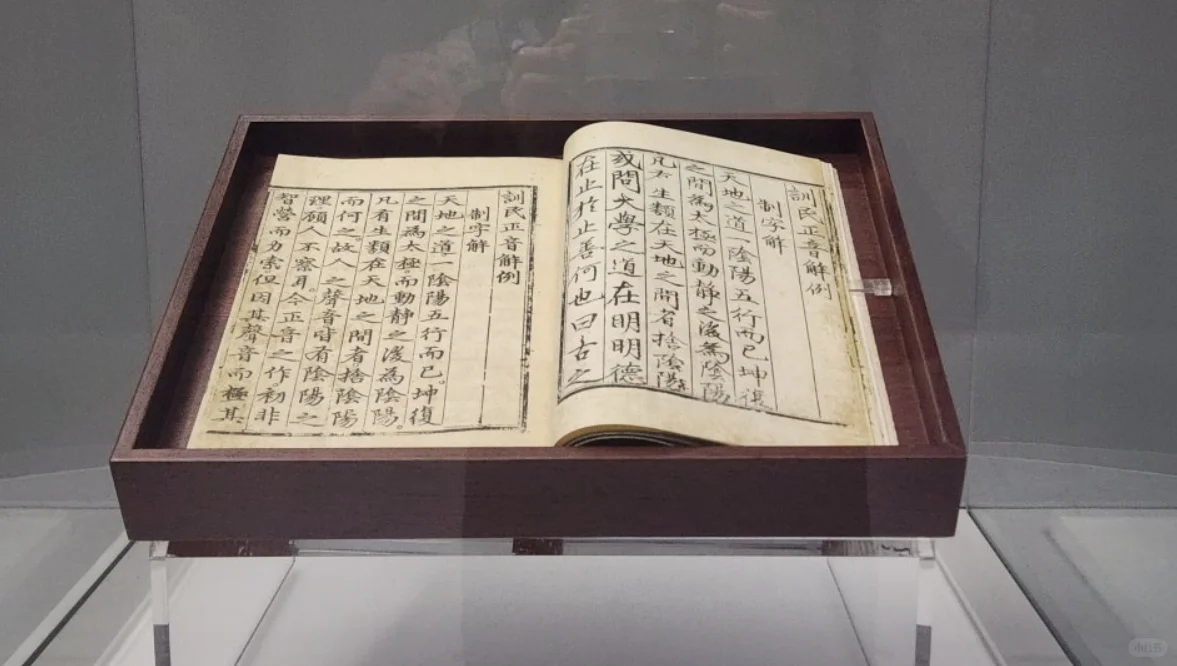 訓民正音解例
制字解
天地之道一陰陽五行而已坤復
之間為太極而動静之後為陰陽
凡有生類在天地之間者捨陰陽
或問大學之道在明明德
在止於止善何也曰古之
訓民正音解例
制字解
天地之道一陰陽五行而已。坤復
之間為太極。而動静之後為陰陽。
凡有生類在天地之間者捨陰陽
而何之。故人之聲音皆有陰陽之
理。顧人不察耳。今正音之作。初非
智營而力索但因其聲音而極其